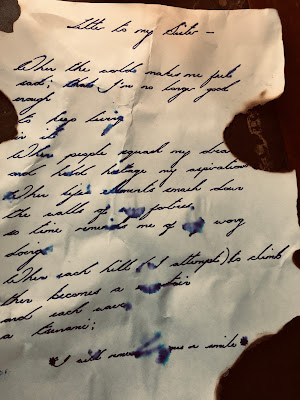 Letter to my Sister –
When the worlds makes me feel
sad; that I'm no longer good
enough
to keep living
in it
When people squash my drea
and hold hostage my aspiration
When life's elements smash down
the walls of my
so time reminds me of my wrong
doings
When each hill (I attempt) to climb
then becomes a
and each wave
a tsunami;
"I will a smile"